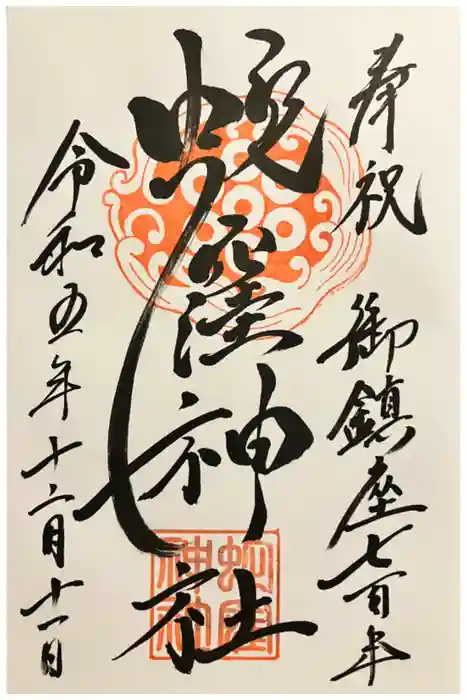 奉祝 御鎮座七百年
蛇窪神社
令和五年十二月十一日
蛇窪神社